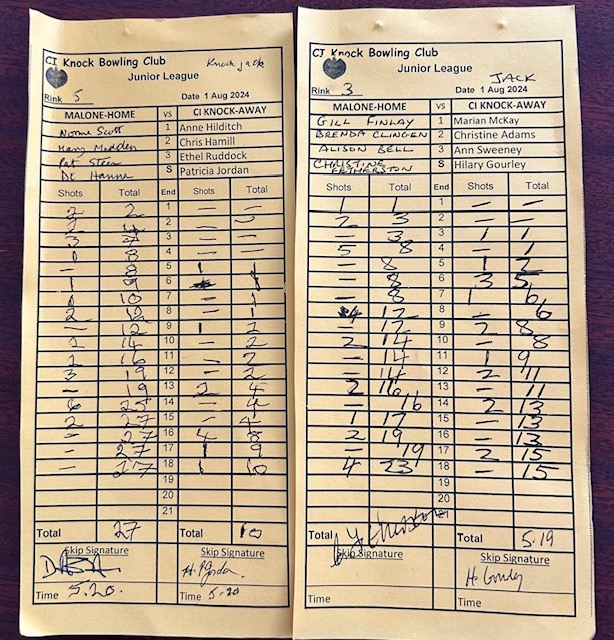 CI Knock Bowling Club
Knock Jack
Junior League
Rink 5 Date 1 Aug 2024
MALONE-HOME VS CI KNOCK-AWAY
Norma Scott 1 Anne Hilditch
Mary Madden 2 Chris Hamill
Pat Steen 3 Ethel Ruddock
S Patricia Jordan
Shots Total End Shots Total
2 2 1 — —
2 4 2 —
3 7 3 — —
1 8 4 — —
— 8 5 1 1
1 9 6 — 1
1 10 7 — 1
2 12 8 — 1
— 12 9 1 2
2 14 10 — 2
16 11 — 2
3 19 12 — 2
— 19 13 2 4
6 25 14 — 4
2 27 15 — 4
— 27 16 4 8
— 27 17 1 9
— 27 18 1 10
19
20
21
Total 27 Total 10
Skip Signature Skip Signature
Time 5.20 Time 5.20
CI Knock Bowling Club
Junior League
JACK
Rink 3 Date 1 Aug 2024
MALONE-HOME VS CI KNOCK-AWAY
GILL FINLAY 1 Marian McKay
BRENDA CLINGEN 2 Christine Adams
ALISON BELL 3 Ann Sweeney
CHRISTINE FETHERSTON S Hilary Gourley
Shots Total End Shots Total
1 1 1 — —
2 3 2 — —
— 3 3 1 1
5 8 4 — 1
— 8 5 1 2
— 8 6 3 5
— 8 7 1 6
4 12 8 — 6
— 12 9 2 8
2 14 10 — 8
— 14 11 1 9
— 14 12 2 11
2 16 13 — 11
— 16 14 2 13
1 17 15 — 13
2 19 16 — 13
— 19 17 2 15
4 23 18 — 15
19
20
21
Total Total 5.19
Skip Signature Skip Signature
H Gourley
Time Time